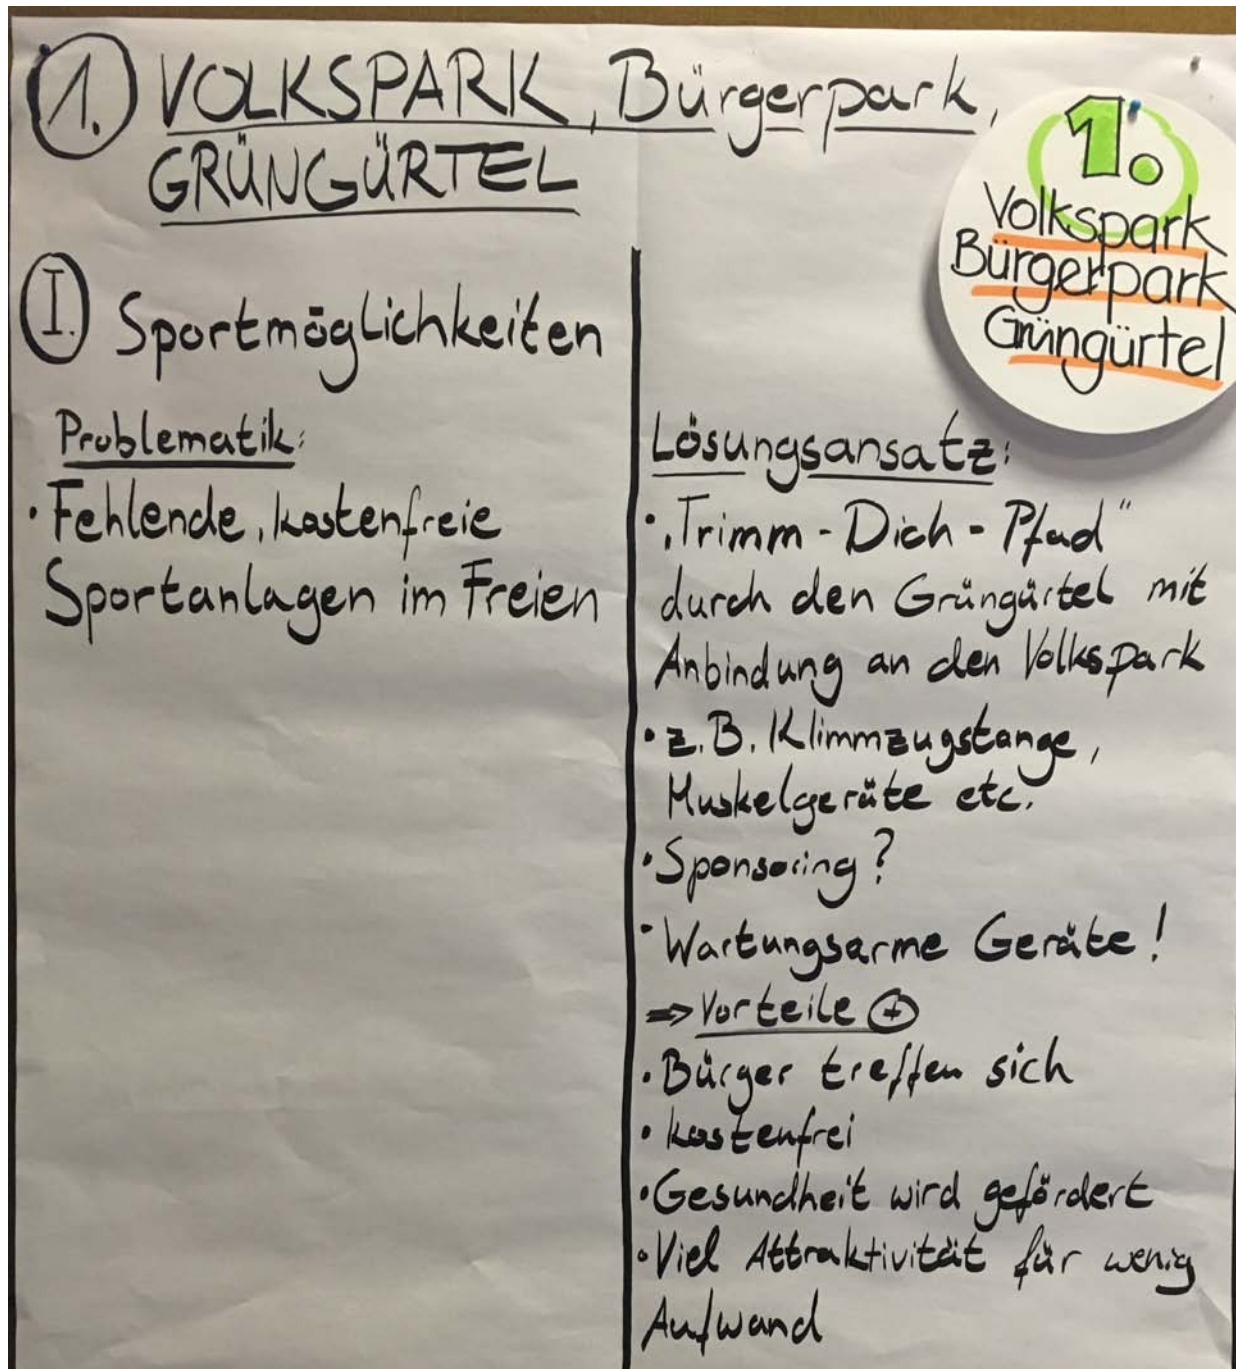 1. VOLKSPARK, Bürgerpark,
GRÜNGÜRTEL
1.
Volkspark
Bürgerpark
Grüngürtel
I. Sportmöglichkeiten
Problematik:
· Fehlende, kostenfreie
Sportanlagen im Freien
Lösungsansatz:
· „Trimm-Dich-Pfad"
durch den Grüngürtel mit
Anbindung an den Volkspark
· z.B. Klimmzugstange,
Muskelgeräte etc.
· Sponsoring?
· Wartungsarme Geräte!
⇒ Vorteile ⊕
· Bürger treffen sich
· kostenfrei
· Gesundheit wird gefördert
· Viel Attraktivität für wenig
Aufwand